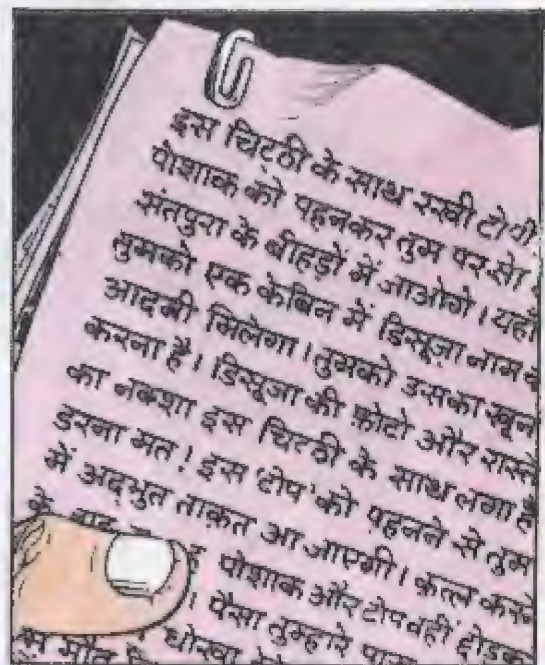 इस चिट्ठी के साथ रखी टोपी
पोशाक को पहनकर तुम परसों
संतपुरा के बीहड़ों में जाओगे। यहाँ
तुमको एक केबिन में डिसूज़ा नाम
आदमी मिलेगा। तुमको उसका खून
करना है। डिसूजा की फ़ोटो और रास्ते
का नक्शा इस चिट्ठी के साथ लगा है
डरना मत! इस 'टोप' को पहनने से तुम
में अद्भुत ताक़त आ जाएगी। क़त्ल करने
के बाद पोशाक और टोप वहीं छोड़कर
पैसा तुम्हारे पास
मौत धोखा